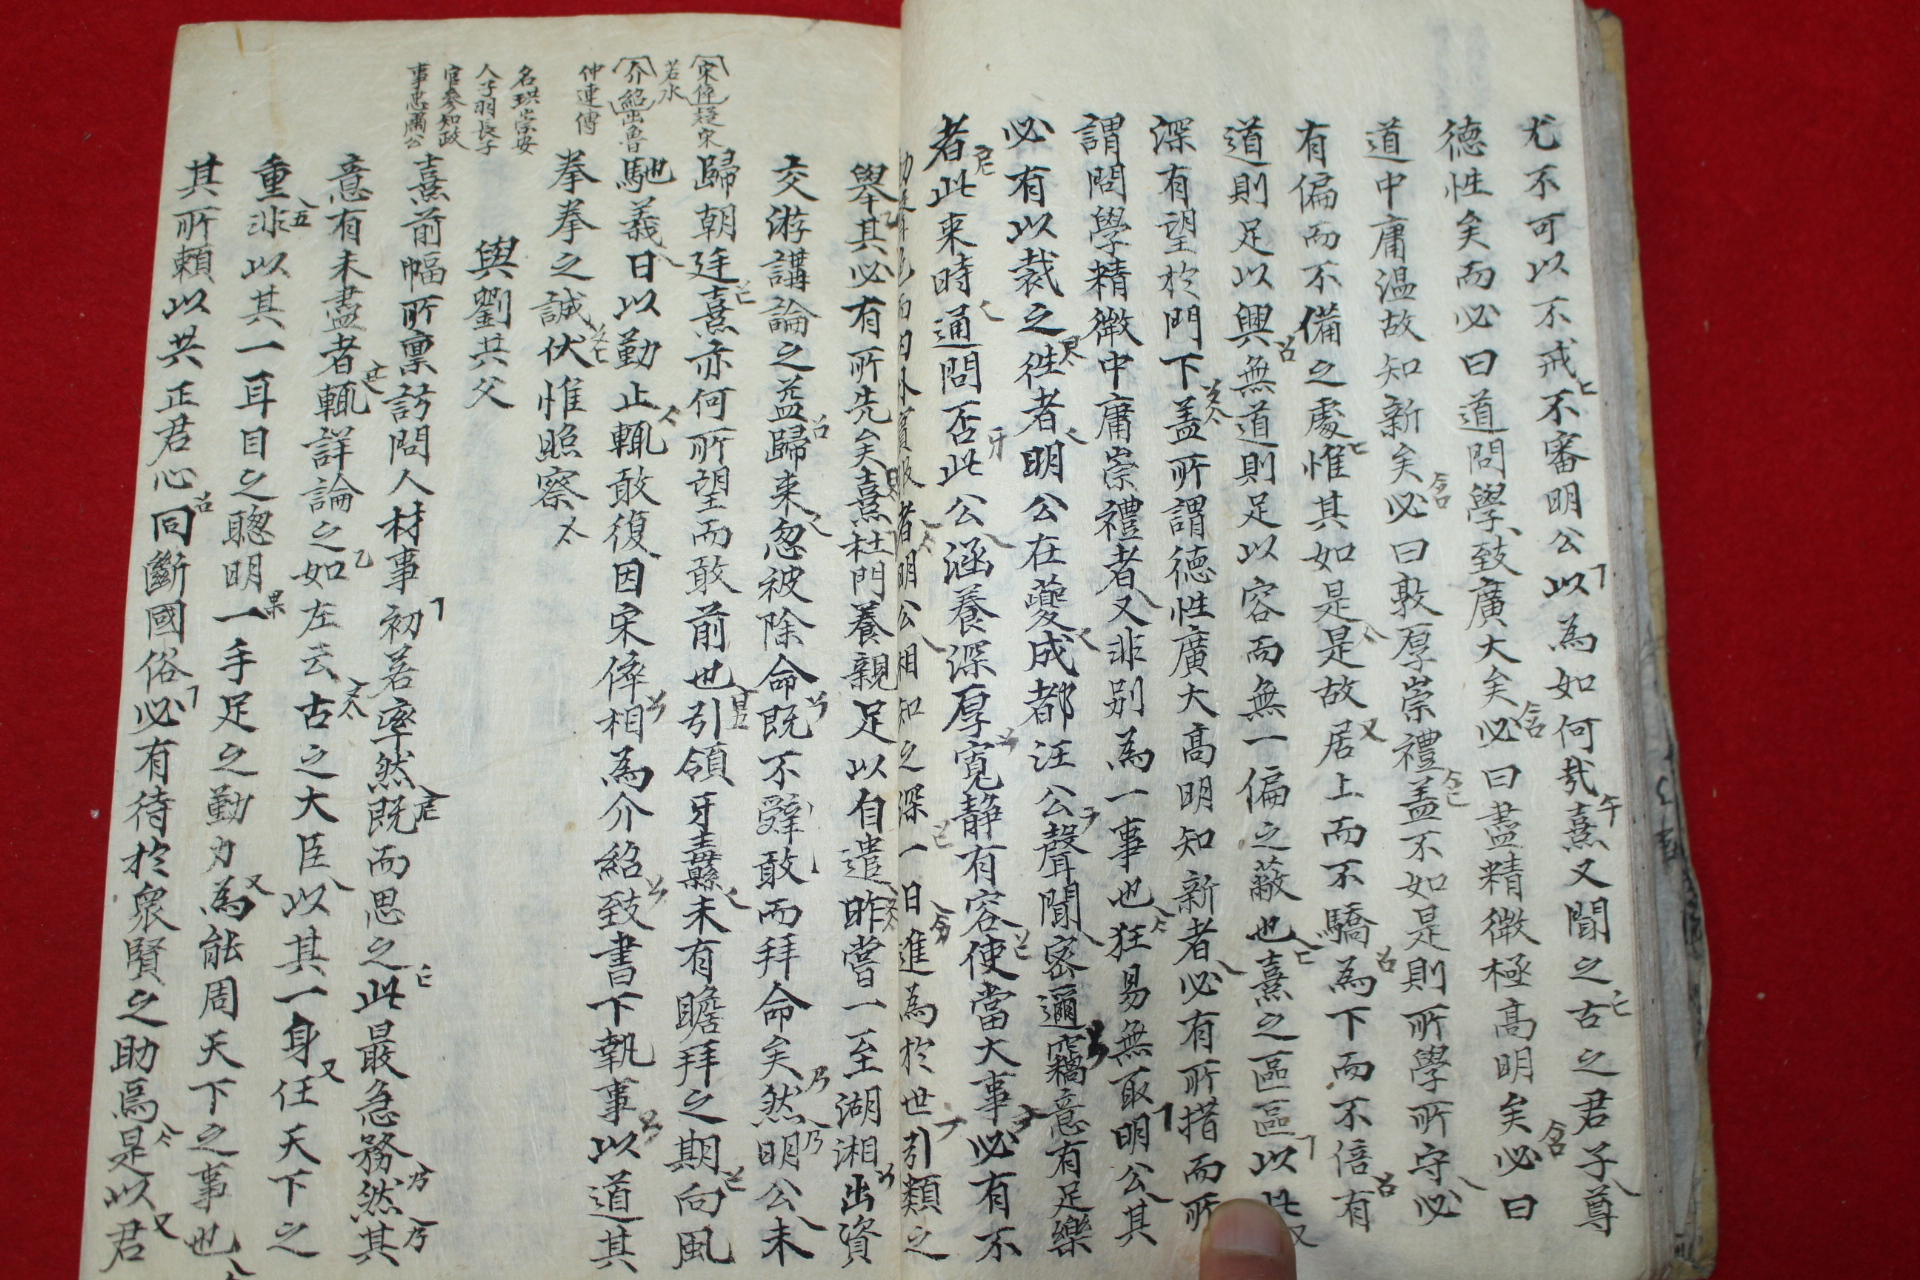 尤不可以不戒不審明公以為如何哉熹又聞之古之君子尊
德性矣而必曰道問學致廣大矣必曰盡精微極高明矣必曰
道中庸温故知新矣必曰敦厚崇禮盖不如是則所學所守必
有偏而不備之處惟其如是是故居上而不驕為下而不倍有
道則足以興無道則足以容而無一偏之蔽也熹之區區以此
深有望於門下盖所謂德性廣大高明知新者必有所措而所
謂問學精微中庸崇禮者又非别為一事也狂易無取明公其
必有以裁之徃者明公在夔成都汪公聲聞密邇竊意有足樂
者此来時通問否此公涵養深厚寛静有容使當大事必有不
者明公相知之深一日進為於世引類之
舉其必有所先矣熹杜門養親足以自遣昨嘗一至湖湘出資
交游講論之益歸来忽被除命既不辭敢而拜命矣然明公未
歸朝廷熹亦何所望而敢前也引領牙纛未有瞻拜之期向風
馳義日以勤止輒敢復因宋倅相為介紹致書下執事以道其
拳拳之誠伏惟照察
與劉共父
熹前幅所禀訪問人材事初若率然既而思之此最急務然其
意有未盡者輒詳論之如左云古之大臣以其一身任天下之
重非以其一耳目之聰明一手足之勤力為能周天下之事也
其所頼以共正君心同斷國俗必有待於衆賢之助焉是以君
宋倅疑宋
若水
介紹出魯
仲連傳
名珙崇安
人子羽長子
官參知政
事忠肅公